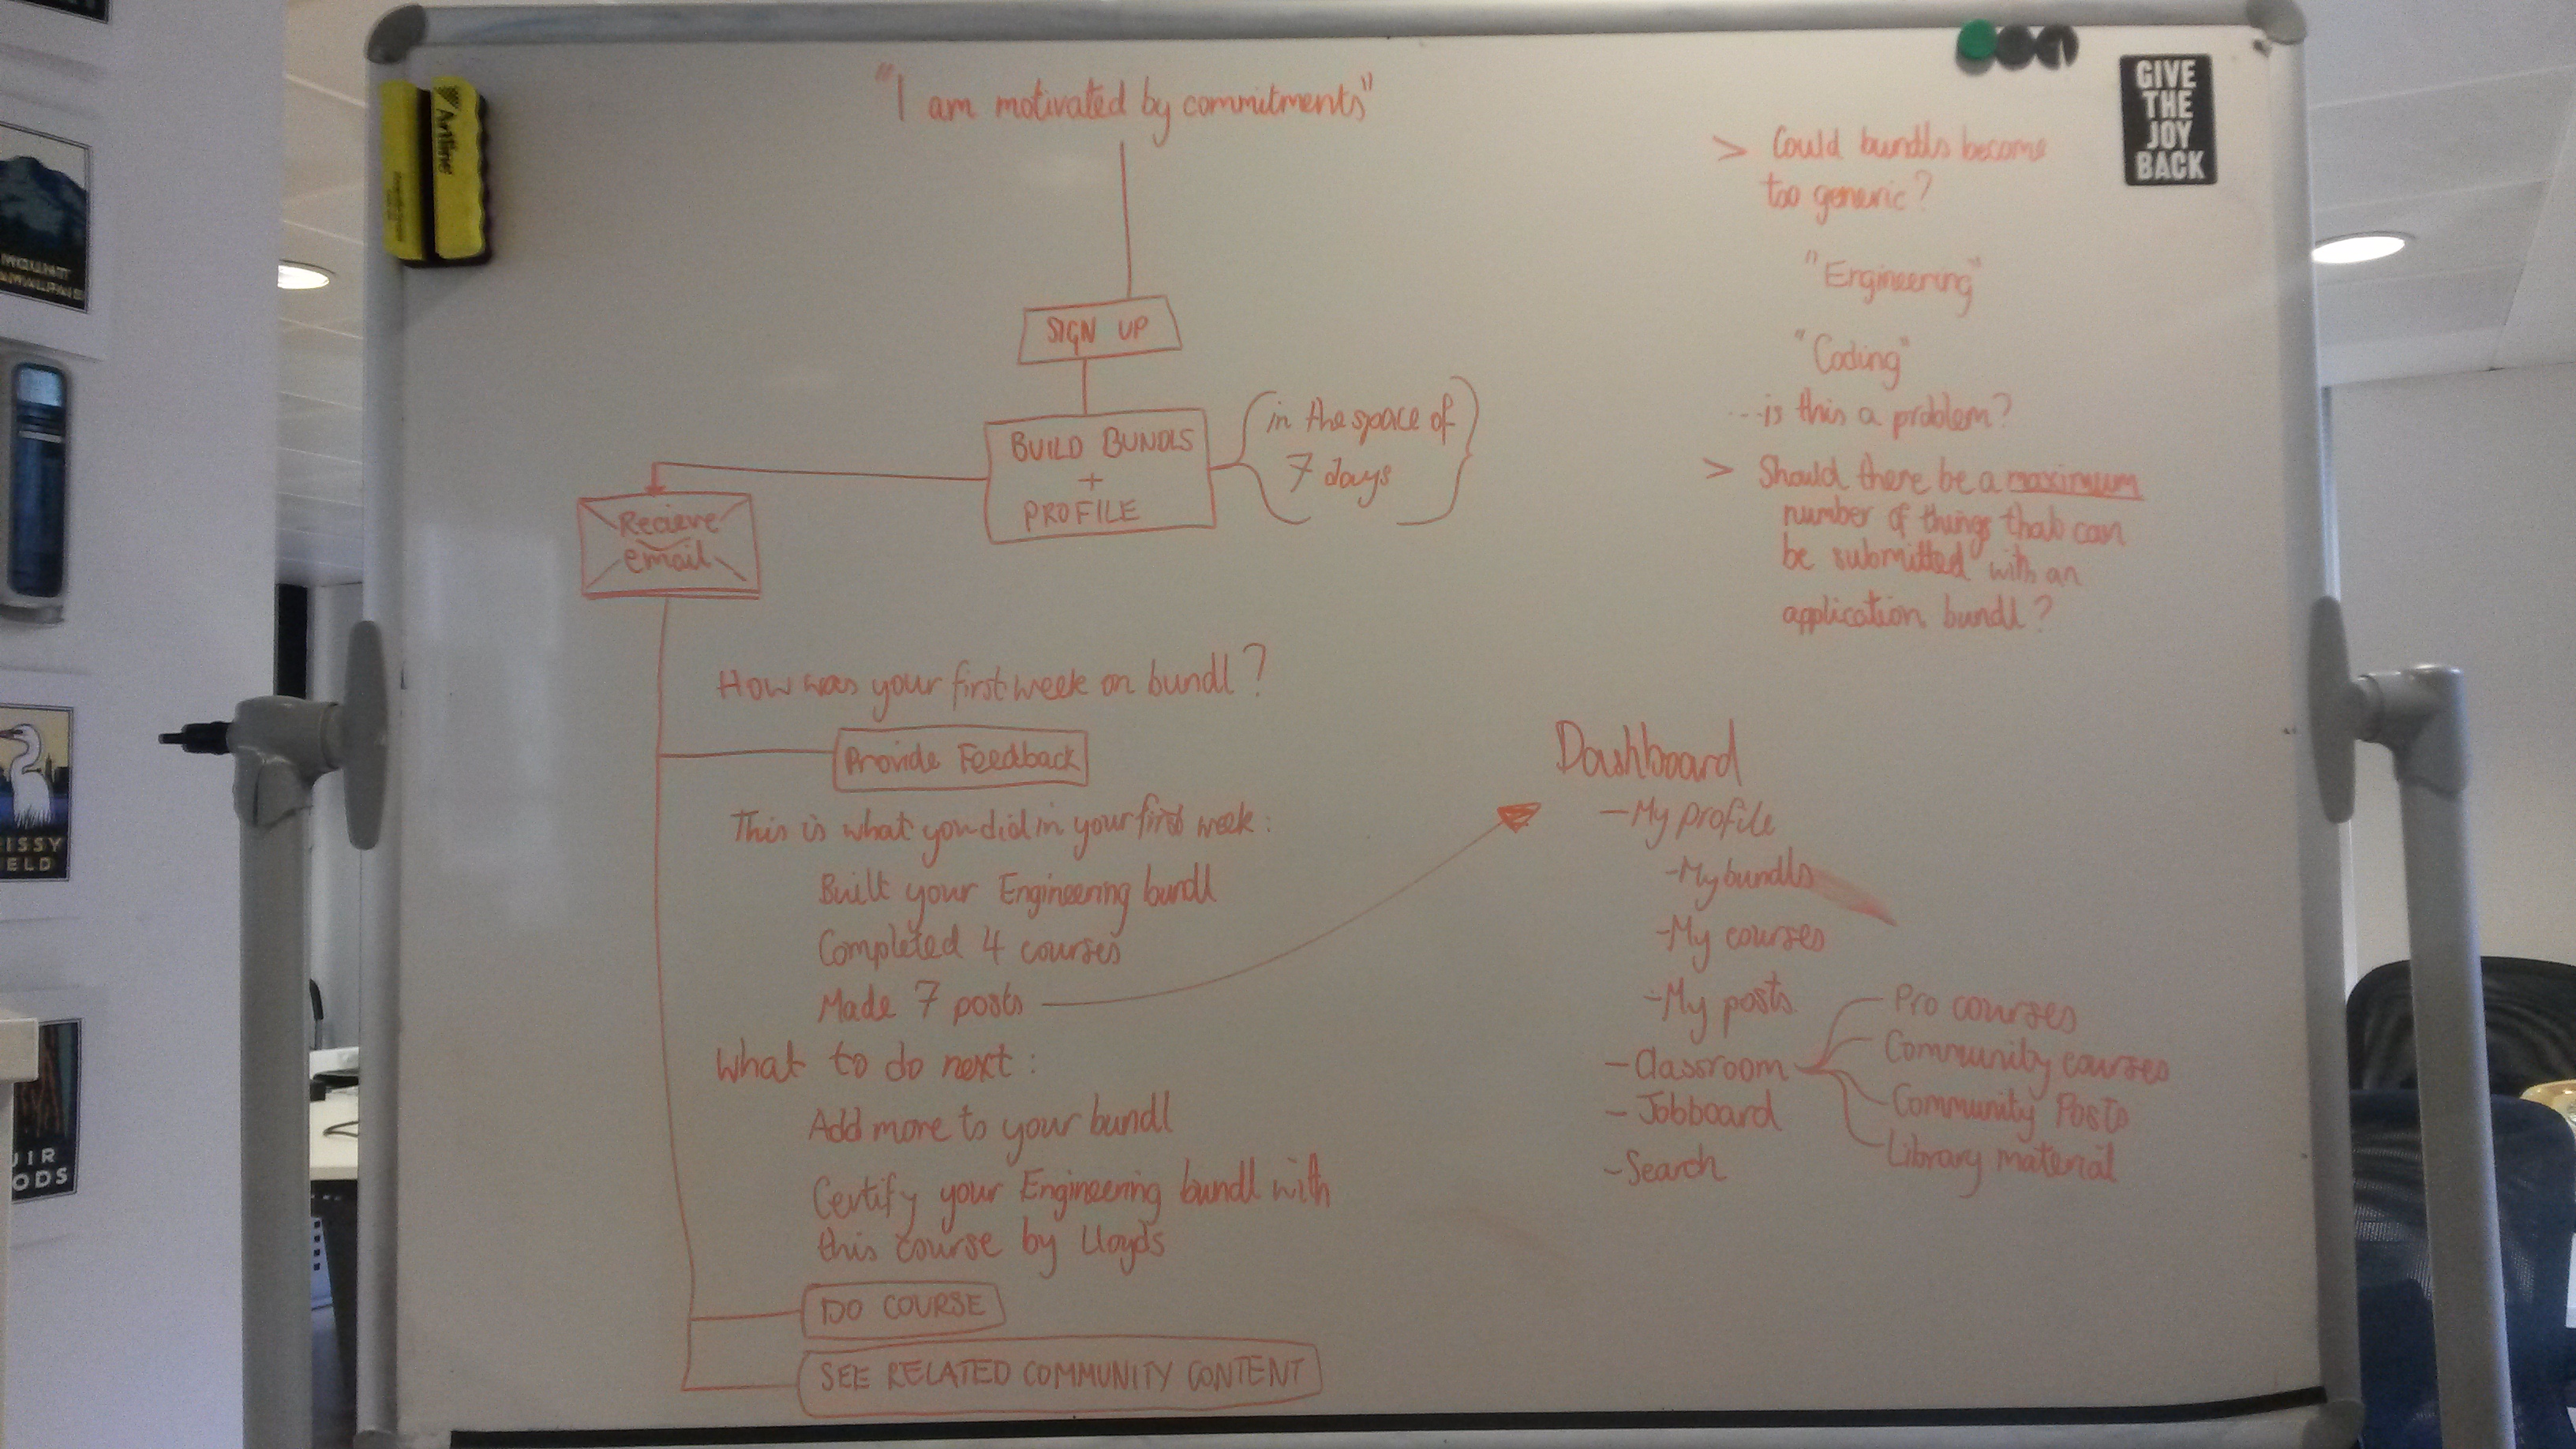 "I am motivated by commitments"
SIGN UP
BUILD BUNDLS
+
PROFILE
in the space of
7 days
Recieve
email
How was your first week on bundl?
Provide Feedback
This is what you did in your first week:
Built your Engineering bundl
Completed 4 courses
Made 7 posts
What to do next:
Add more to your bundl
Certify your Engineering bundl with
this course by Lloyds
DO COURSE
SEE RELATED COMMUNITY CONTENT
> Could bundls become
too generic?
"Engineering"
"Coding"
...is this a problem?
> Should there be a maximum
number of things that can
be submitted with an
application bundl?
Dashboard
- My profile
- My bundls
- My courses
- My posts
- Classroom
- Jobboard
- Search
Pro courses
Community courses
Community Posts
Library material
GIVE
THE
JOY
BACK
Artline
ISSY
ELD
UIR
ODS